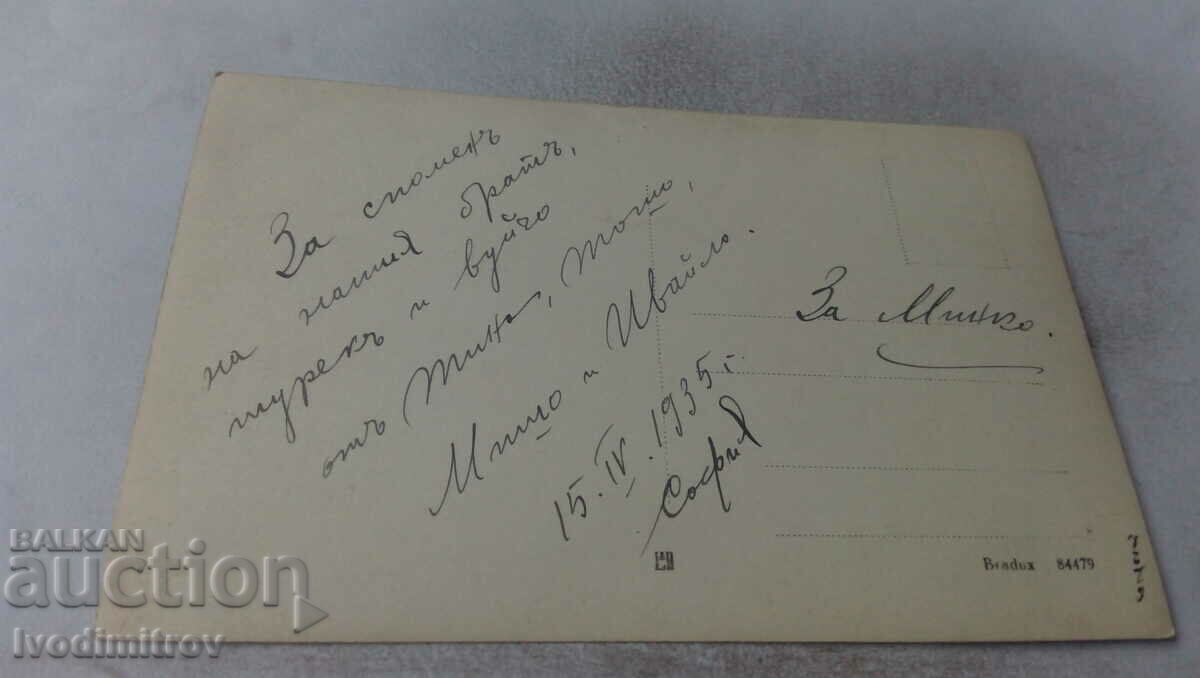 За споменъ
на нашия братъ,
шурекъ и вуйчо
отъ Тина, Тошо,
Мишо и Ивайло.
15.IV.1935 г.
София
За Минко.
Bradux 84479
BALKAN
auction
Ivodimitrov